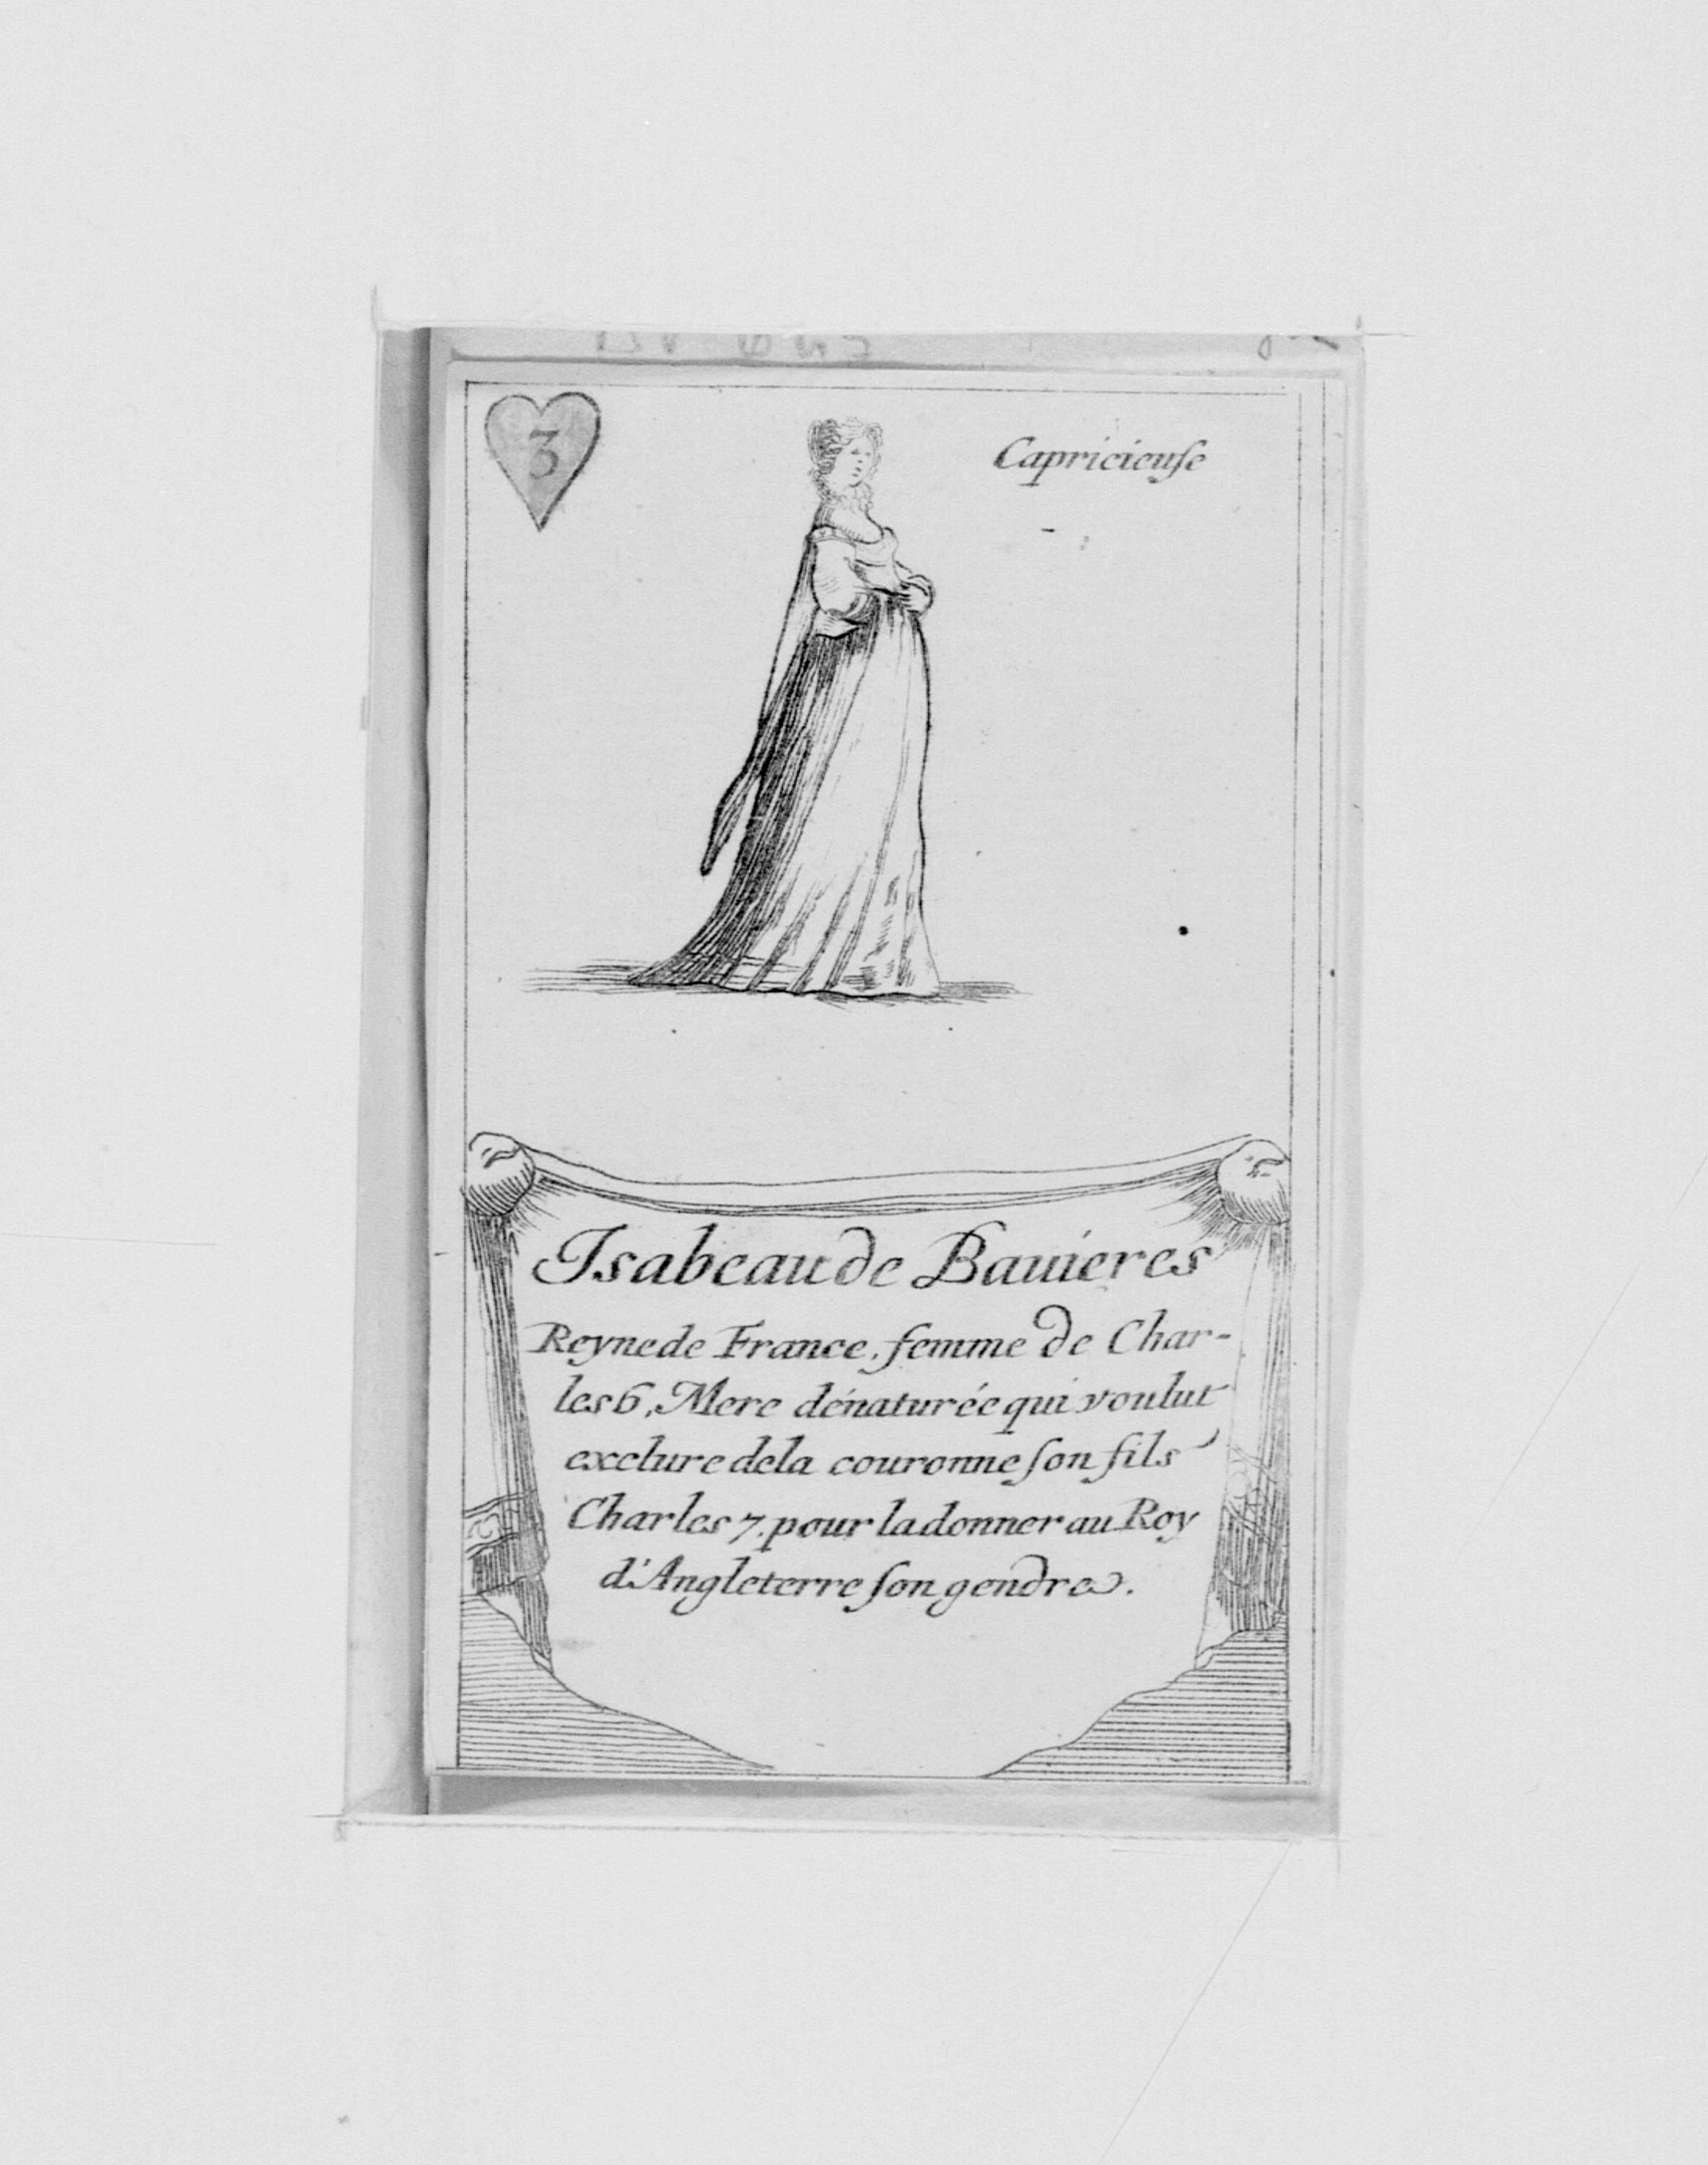 3
Capricieuse
Isabeau de Bauieres
Reyne de France, femme de Char-
les 6, Mere dénaturée qui voulut
exclure de la couronne son fils
Charles 7. pour la donner au Roy
d'Angleterre son gendre.